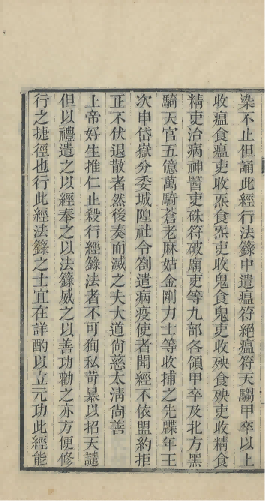 染不止但誦此經行法籙中遣瘟符絕瘟符天騶甲卒以上
收瘟食瘟吏收炁食炁吏收鬼食鬼吏收殃食殃吏收精食
精吏治病神醫吏硃符破廟吏等九部各領甲卒及北方黑
騎天官五億萬騎蒼老麻姑金剛力士等收捕之先牒年王
次申岱嶽分委城隍社令劄遣病疫使者聞經不依盟約拒
正不伏退散者然後奏而滅之夫大道尙慈太淸尙善
上帝好生推仁止殺行經籙法者不可狥私苛暴以招天譴
但以禮遣之以經奉之以法籙威之以善功勸之亦方便修
行之捷徑也行此經法籙之士宜在詳酌以立元功此經能